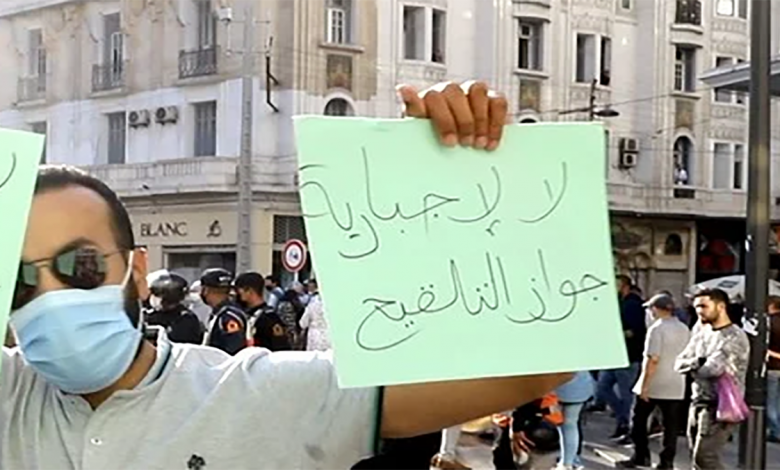 لا لإجبارية
جواز التلقيح
BLANC